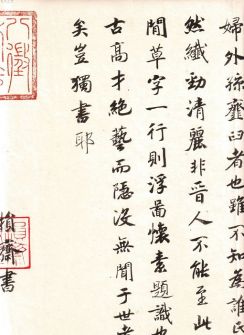 婦外孫齏臼者也雖不知為誰
然纖勁清麗非晉人不能至此
間草字一行則浮圖懷素題識也
古高才絕藝而隱沒無聞于世者
矣豈獨書耶
齋書